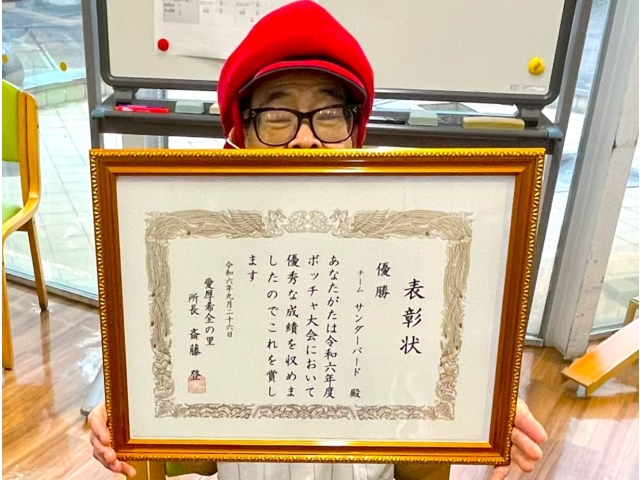 表彰状
優勝
チーム サンダーバード 殿
あなたがたは令和六年度
ボッチャ大会において
優秀な成績を収めま
したのでこれを賞し
ます
令和六年九月二十六日
愛厚希全の里
所長 斎藤 登